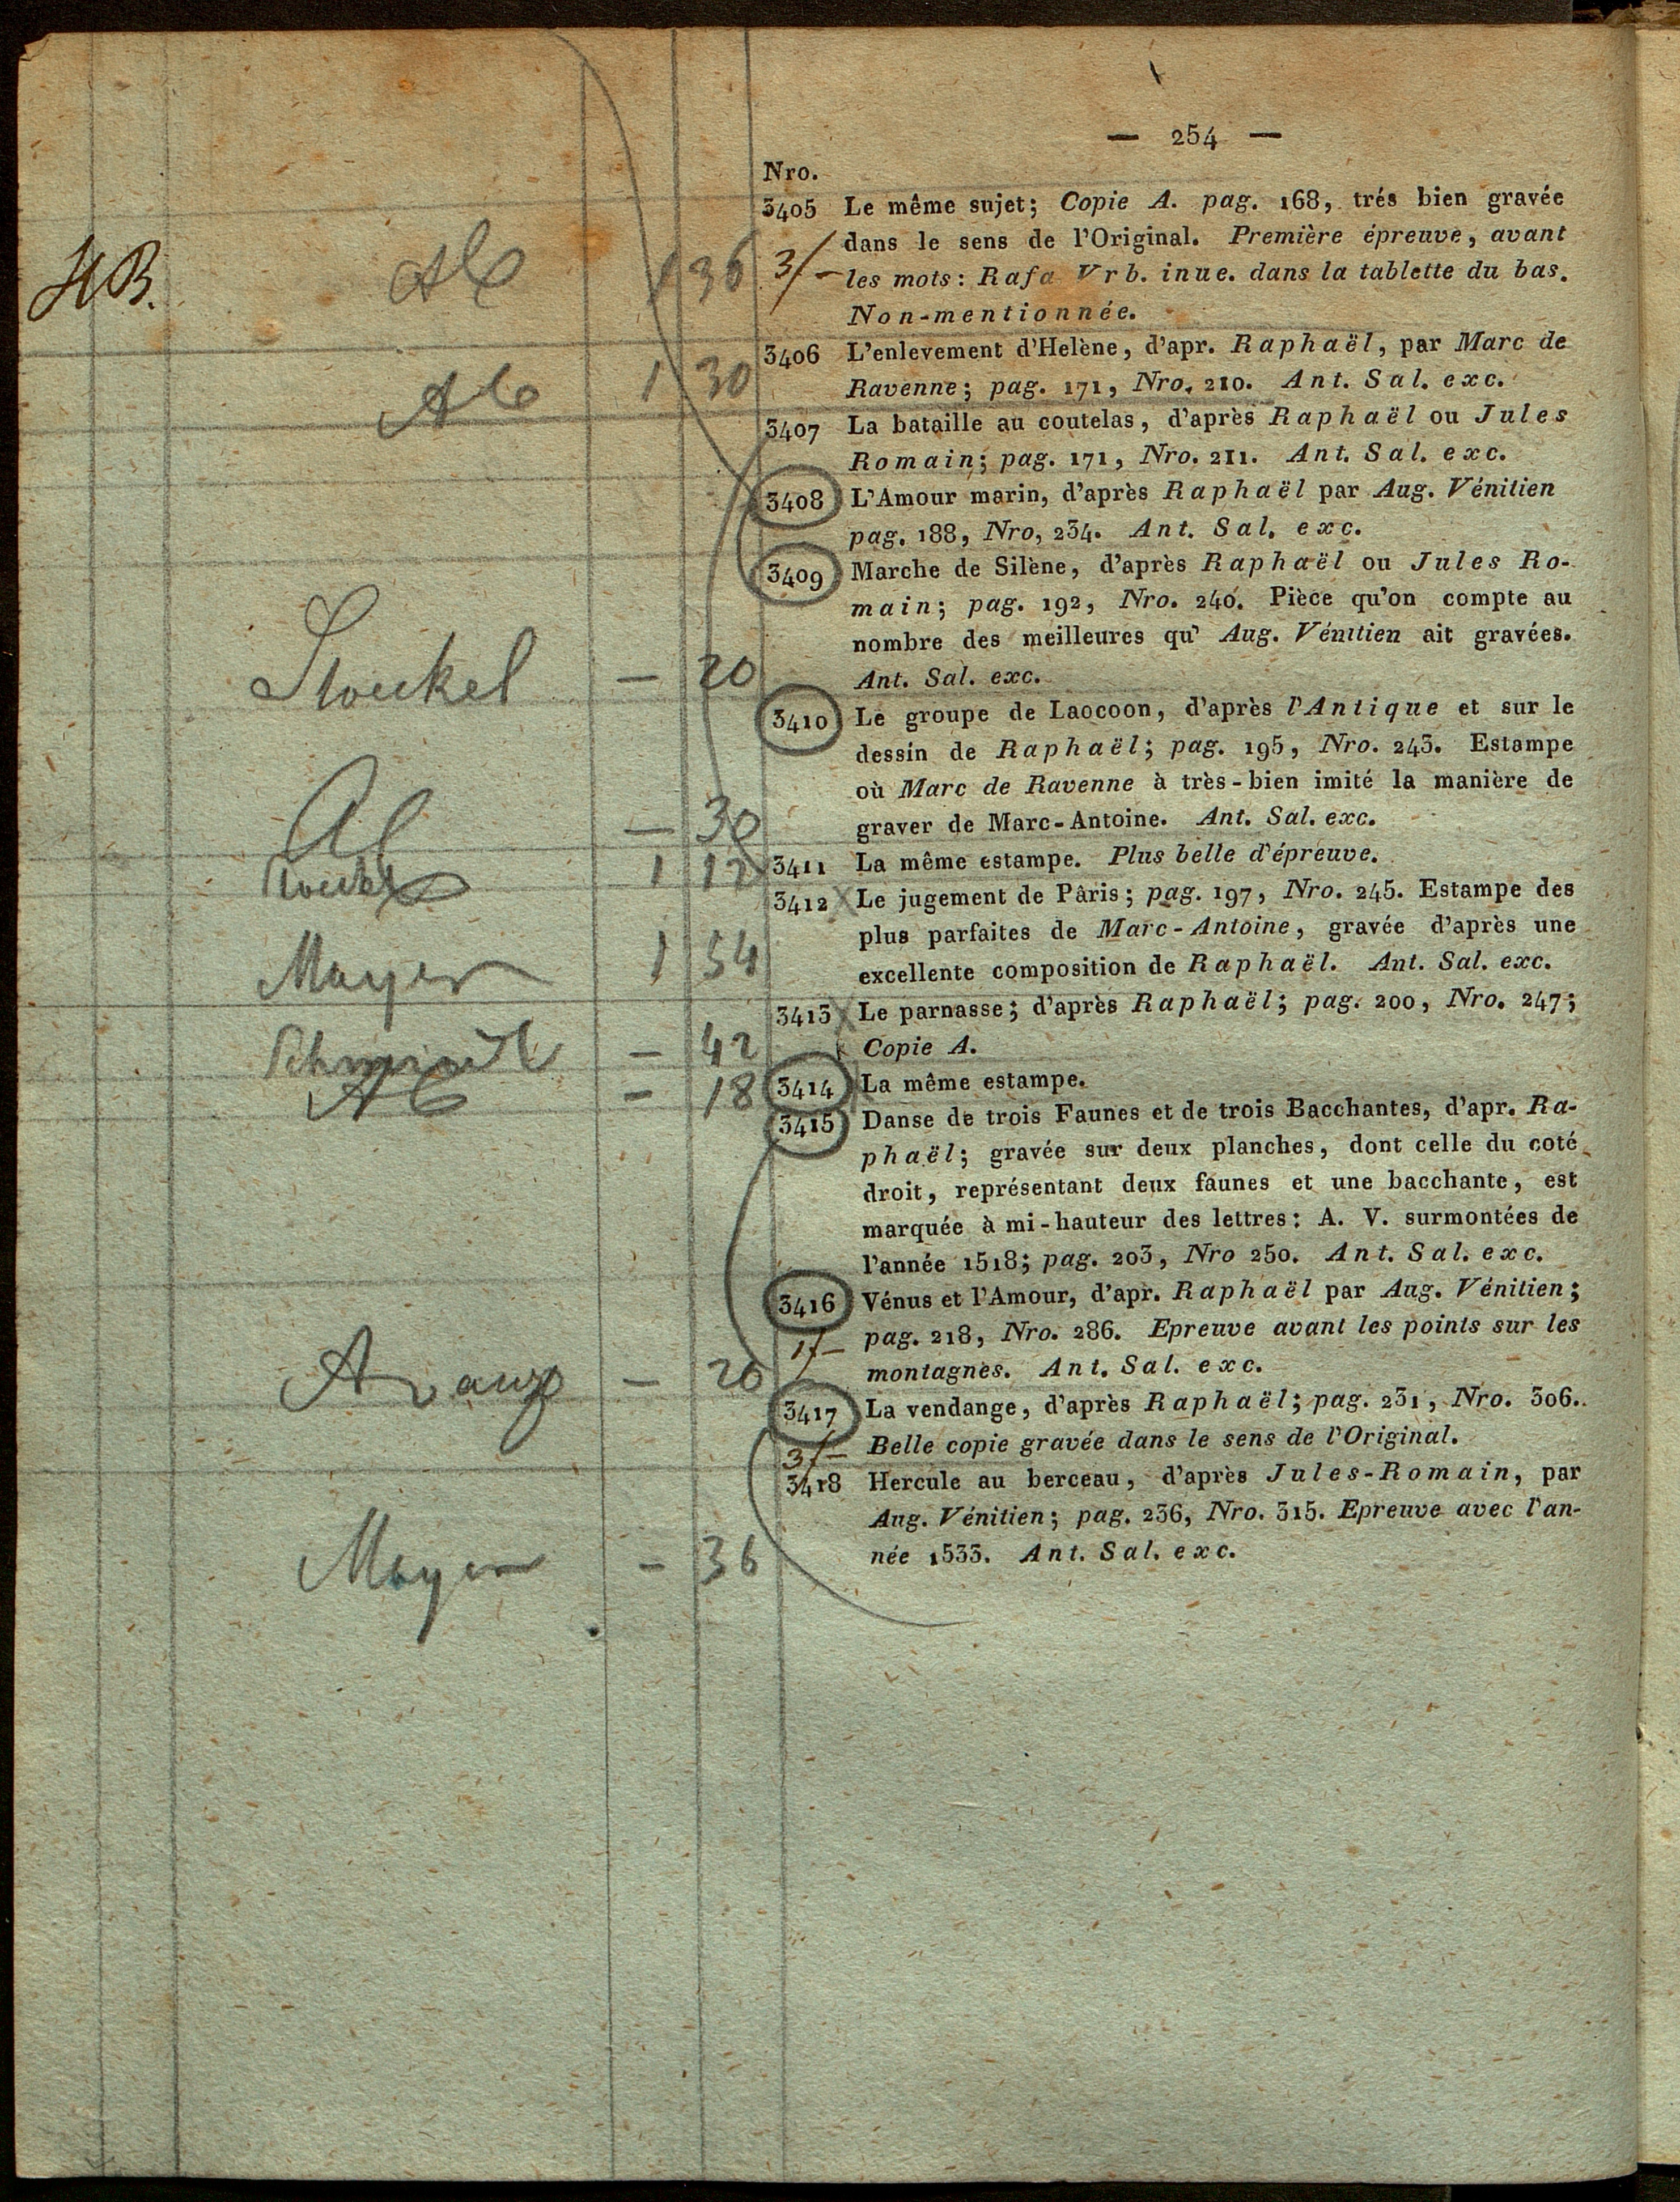 — 254 —
Nro.
3405 Le même sujet; Copie A. pag. 168, trés bien gravée
dans le sens de l'Original. Première épreuve, avant
les mots: Rafa Vrb. inue. dans la tablette du bas.
Non-mentionnée.
HB. 1 36 3f—
3406 L'enlevement d'Helène, d'apr. Raphaël, par Marc de
Ravenne; pag. 171, Nro. 210. Ant. Sal. exc.
1 30
3407 La bataille au coutelas, d'après Raphaël ou Jules
Romain; pag. 171, Nro. 211. Ant. Sal. exc.
3408 L'Amour marin, d'après Raphaël par Aug. Vénitien
pag. 188, Nro, 234. Ant. Sal. exc.
3409 Marche de Silène, d'après Raphaël ou Jules Ro-
main; pag. 192, Nro. 240. Pièce qu'on compte au
nombre des meilleures qu' Aug. Vénitien ait gravées.
Ant. Sal. exc.
Stoeckel — 20
3410 Le groupe de Laocoon, d'après l'Antique et sur le
dessin de Raphaël; pag. 195, Nro. 243. Estampe
où Marc de Ravenne à très-bien imité la manière de
graver de Marc-Antoine. Ant. Sal. exc.
— 30
3411 La même estampe. Plus belle d'épreuve.
1 12
3412 Le jugement de Pâris; pag. 197, Nro. 245. Estampe des
plus parfaites de Marc-Antoine, gravée d'après une
excellente composition de Raphaël. Ant. Sal. exc.
Mayer 1 54
3413 Le parnasse; d'après Raphaël; pag. 200, Nro. 247;
Copie A.
Schmidt — 42
3414 La même estampe.
— 18
3415 Danse de trois Faunes et de trois Bacchantes, d'apr. Ra-
phaël; gravée sur deux planches, dont celle du coté
droit, représentant deux faunes et une bacchante, est
marquée à mi-hauteur des lettres: A. V. surmontées de
l'année 1518; pag. 203, Nro 250. Ant. Sal. exc.
3416 Vénus et l'Amour, d'apr. Raphaël par Aug. Vénitien;
pag. 218, Nro. 286. Epreuve avant les points sur les
montagnes. Ant. Sal. exc.
— 20 1f—
3417 La vendange, d'après Raphaël; pag. 231, Nro. 306.
Belle copie gravée dans le sens de l'Original.
3f—
3418 Hercule au berceau, d'après Jules-Romain, par
Aug. Vénitien; pag. 236, Nro. 315. Epreuve avec l'an-
née 1533. Ant. Sal. exc.
Mayer — 36